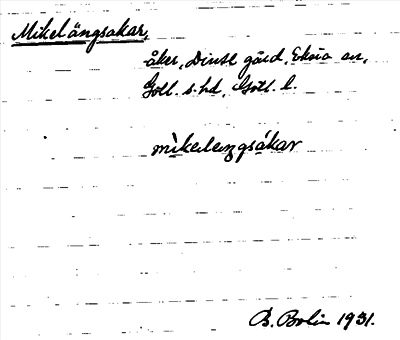 Mikelängsakar,
åker, Dinsl gård, Eksta sn,
Gotl. s. hd, Gotl. l.
mikelængsákar
B. Bolin 1931.